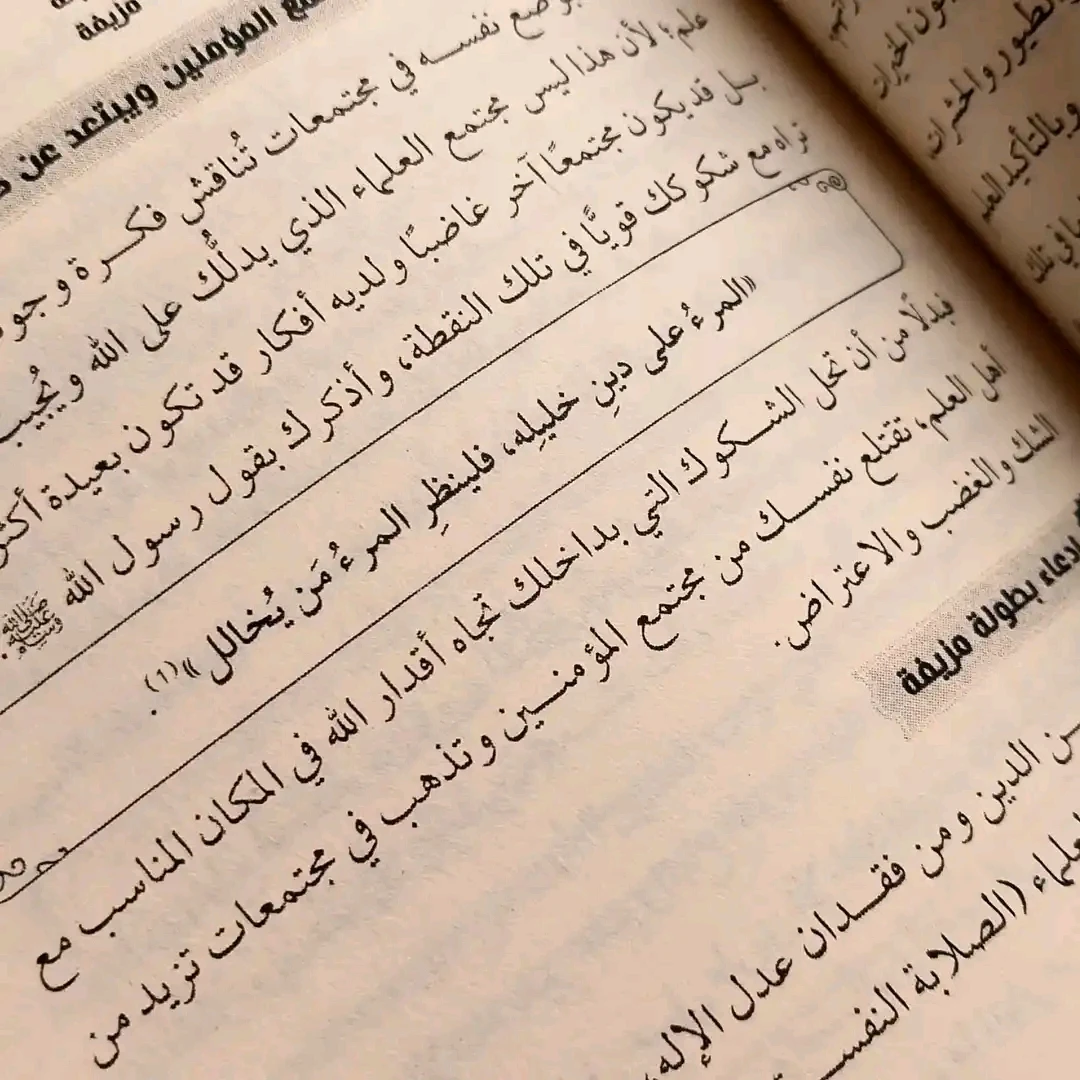 مزيفة
ع المؤمنين ويبتعد عن
وضع نفسه في مجتمعات تُناقش فكرة وجود
علم؛ لأن هذا ليس مجتمع العلماء الذي يدلُّك على الله ويُجيب
بل قد يكون مجتمعًا آخر غاضبًا ولديه أفكار قد تكون بعيدة أكثر
تراه مع شكوكك قويًّا في تلك النقطة، وأذكرك بقول رسول الله ﷺ:
«المرءُ على دينِ خليلِه، فلينظرِ المرءُ مَن يُخالل»(١).
فبدلًا من أن تحل الشكوك التي بداخلك تجاه أقدار الله في المكان المناسب مع
أهل العلم، تقتلع نفسك من مجتمع المؤمنين وتذهب في مجتمعات تزيد من
الشك والغضب والاعتراض.
ادعاء بطولة مزيفة
ـن الدين ومن فقدان عدل الإله
علماء (الصلابة النفسـ
ون الحيرات
الطيور والحشرات
وبالتأكيد
في تلك